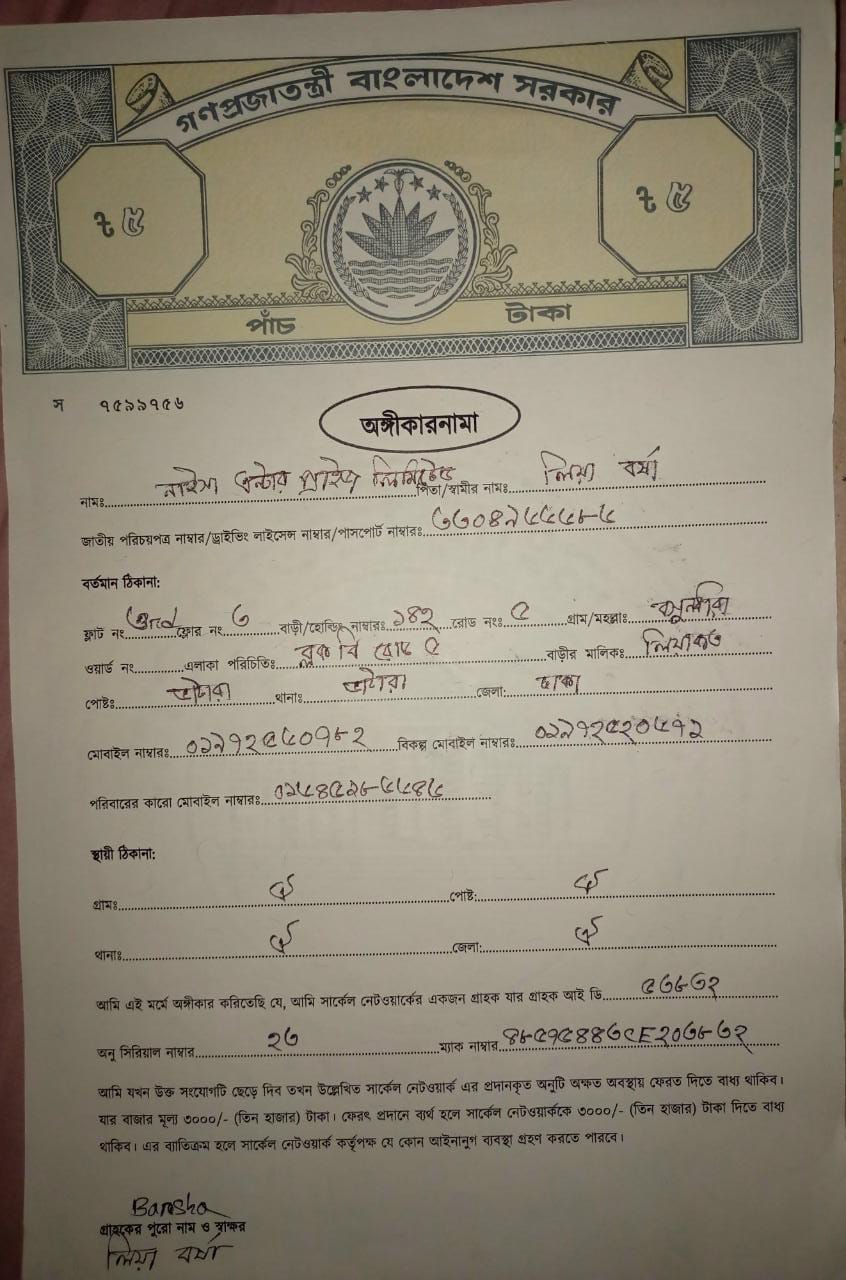 গণপ্রজাতন্ত্রী বাংলাদেশ সরকার
৳ ৫ ৳ ৫
পাঁচ টাকা
স ৭৫৯৯৭৫৬
অঙ্গীকারনামা
নামঃ নাইসা এন্টার প্রাইজ লিমিটেড পিতা/স্বামীর নামঃ লিয়া বর্ষা
জাতীয় পরিচয়পত্র নাম্বার/ড্রাইভিং লাইসেন্স নাম্বার/পাসপোর্ট নাম্বারঃ
বর্তমান ঠিকানা:
ফ্লাট নং ফ্লোর নং ৩ বাড়ী/হোল্ডিং নাম্বারঃ ১৪২ রোড নংঃ ৫ গ্রাম/মহল্লাঃ
ওয়ার্ড নং এলাকা পরিচিতিঃ ব্লক বি রোড ৫ বাড়ীর মালিকঃ লিয়াকত
পোষ্টঃ ভাটারা থানাঃ ভাটারা জেলা: ঢাকা
মোবাইল নাম্বারঃ বিকল্প মোবাইল নাম্বারঃ
পরিবারের কারো মোবাইল নাম্বারঃ
স্থায়ী ঠিকানা:
গ্রামঃ ঐ পোষ্ট: ঐ
থানাঃ ঐ জেলা: ঐ
আমি এই মর্মে অঙ্গীকার করিতেছি যে, আমি সার্কেল নেটওয়ার্কের একজন গ্রাহক যার গ্রাহক আই ডি ৫৩৮৩২
অনু সিরিয়াল নাম্বার ২৩ ম্যাক নাম্বার
আমি যখন উক্ত সংযোগটি ছেড়ে দিব তখন উল্লেখিত সার্কেল নেটওয়ার্ক এর প্রদানকৃত অনুটি অক্ষত অবস্থায় ফেরত দিতে বাধ্য থাকিব।
যার বাজার মূল্য ৩০০০/- (তিন হাজার) টাকা। ফেরৎ প্রদানে ব্যর্থ হলে সার্কেল নেটওয়ার্ককে ৩০০০/- (তিন হাজার) টাকা দিতে বাধ্য
থাকিব। এর ব্যতিক্রম হলে সার্কেল নেটওয়ার্ক কর্তৃপক্ষ যে কোন আইনানুগ ব্যবস্থা গ্রহণ করতে পারবে।
Barsha
গ্রাহকের পুরো নাম ও স্বাক্ষর
লিয়া বর্ষা